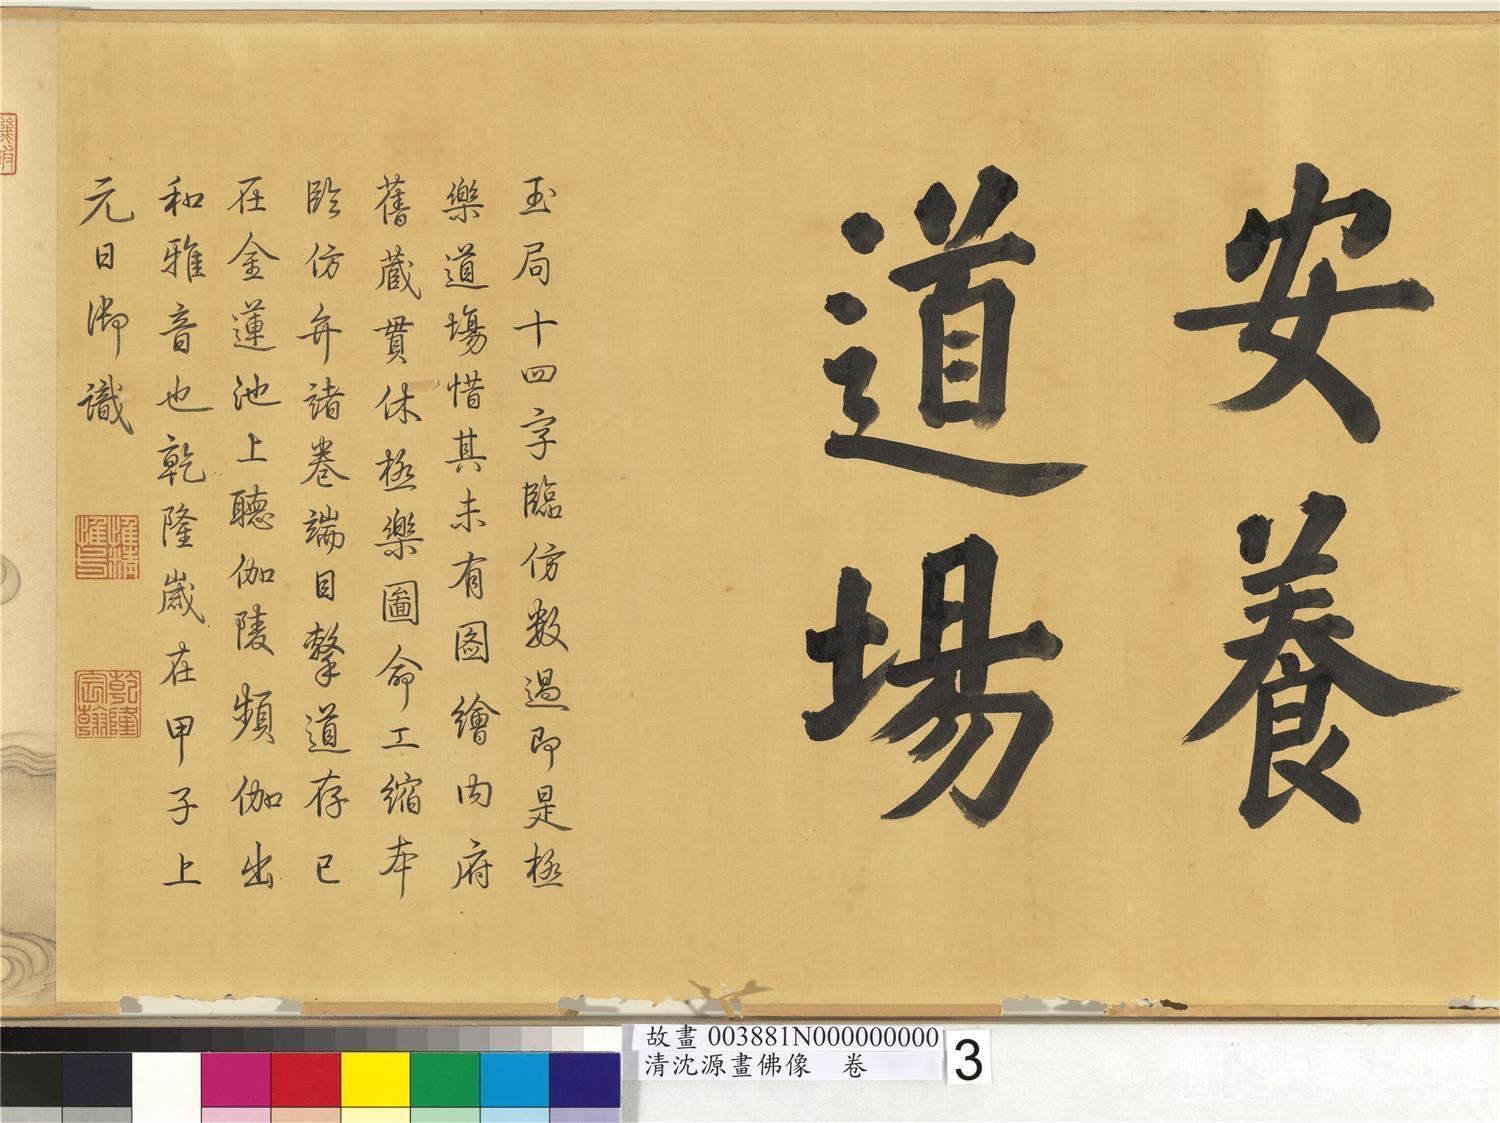 安養
道場
玉局十四字臨仿數過即是極
樂道場惜其未有圖繪內府
舊蔵貫休極樂圖命工縮本
臨仿弁諸卷端目擊道存已
在金蓮池上聽伽陵頻伽出
和雅音也乾隆歲在甲子上
元日御識
乾隆宸翰
故畫 003881N000000000
清沈源畫佛像 卷
3